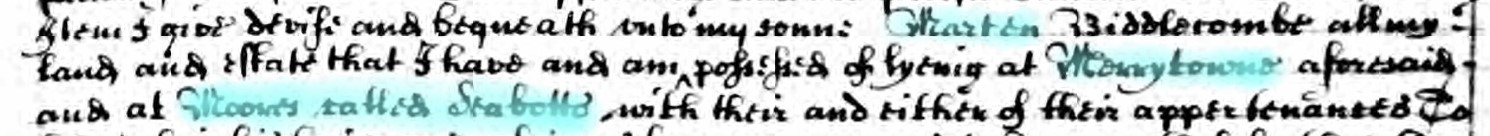 Item I give devise and bequeath unto my sonne Marten Biddlecombe all my
land and estate that I have and am possessed of lyenig at Merrytowne aforesaid
and at Moores called Seabotts with their and either of their appertenances To